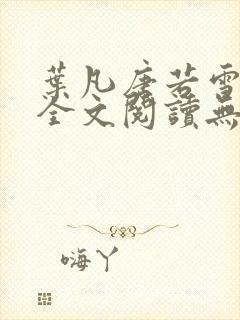 葉凡唐若雪
全文閱讀無
嗨丫